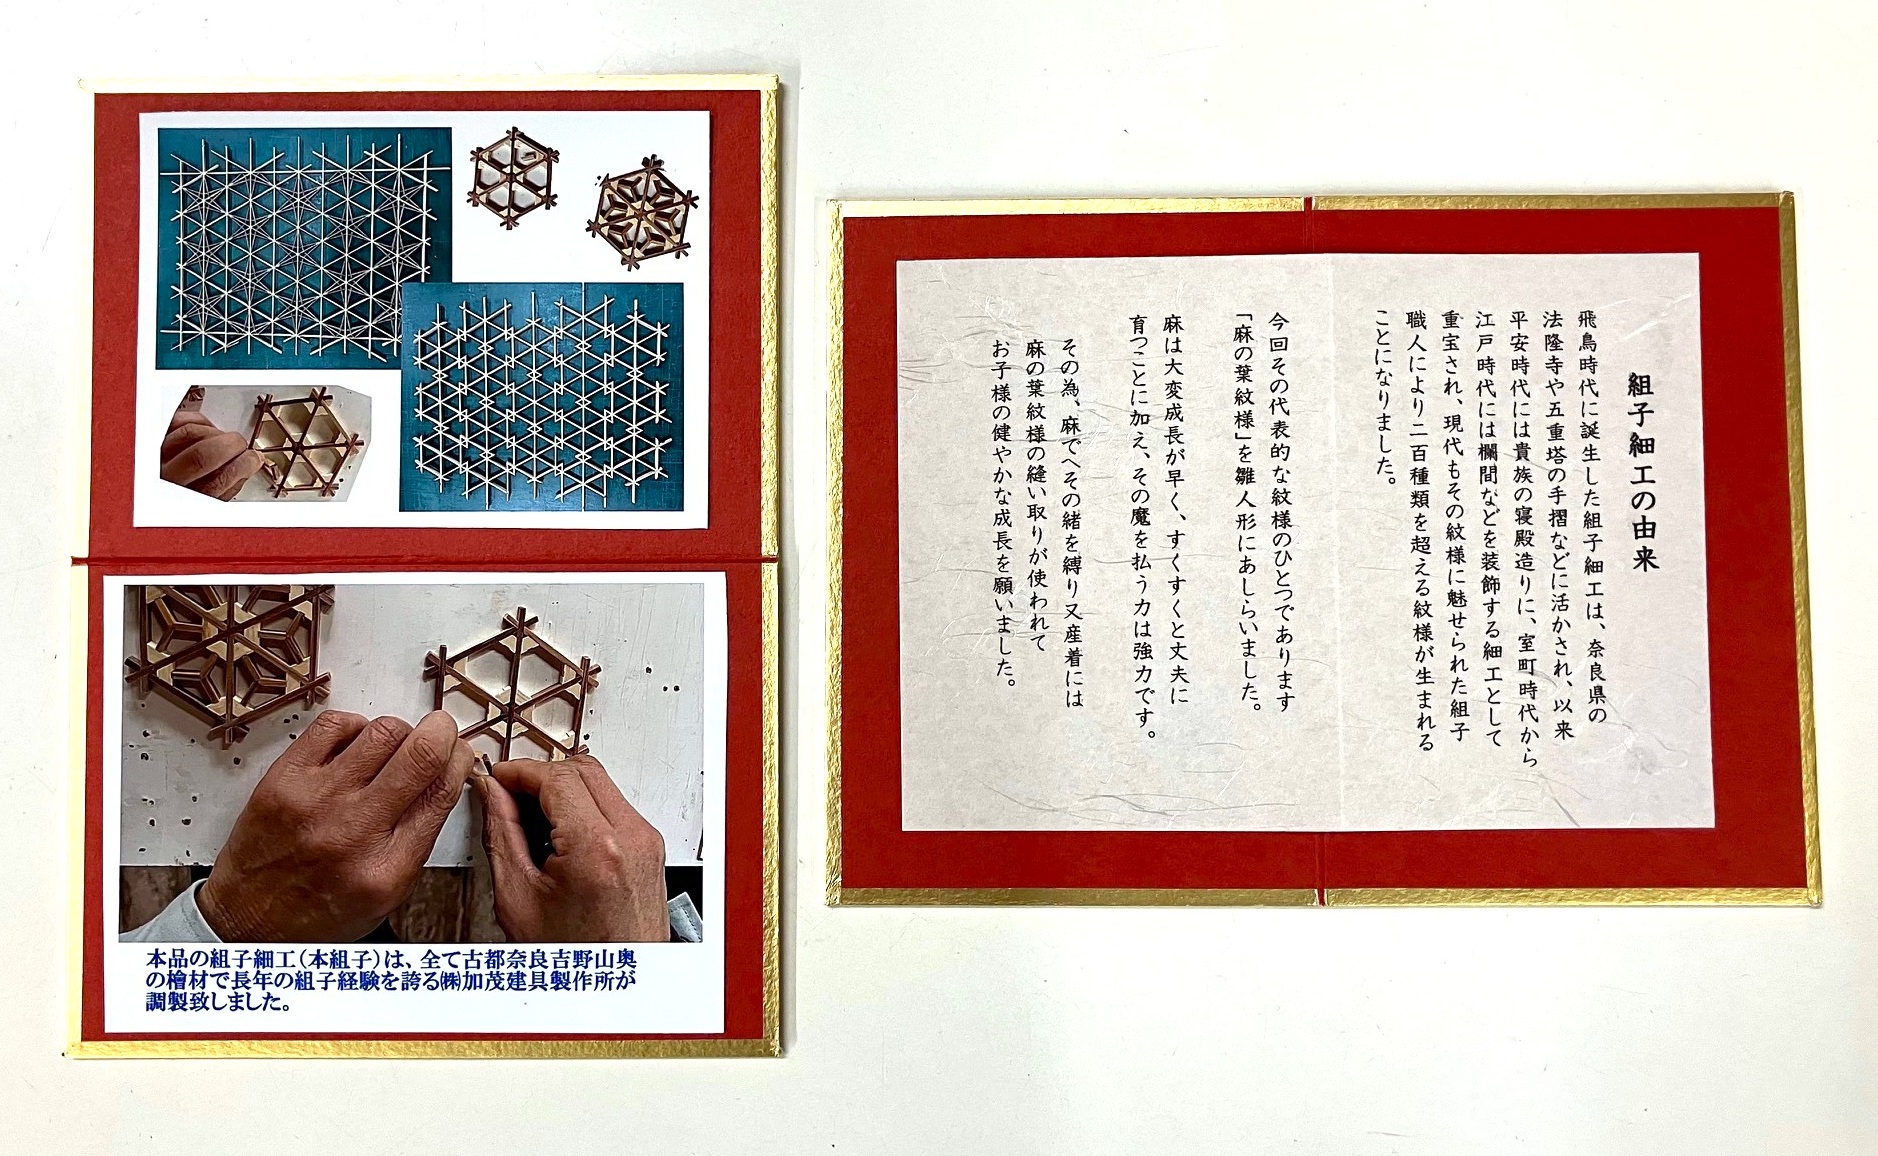 本品の組子細工(本組子)は、全て古都奈良吉野山奥
の檜材で長年の組子経験を誇る㈱加茂建具製作所が
調製致しました。
組子細工の由来
飛鳥時代に誕生した組子細工は、奈良県の
法隆寺や五重塔の手摺などに活かされ、以来
平安時代には貴族の寝殿造りに、室町時代から
江戸時代には欄間などを装飾する細工として
重宝され、現代もその紋様に魅せられた組子
職人により二百種類を超える紋様が生まれる
ことになりました。
今回その代表的な紋様のひとつであります
「麻の葉紋様」を雛人形にあしらいました。
麻は大変成長が早く、すくすくと丈夫に
育つことに加え、その魔を払う力は強力です。
その為、麻でへその緒を縛り又産着には
麻の葉紋様の縫い取りが使われて
お子様の健やかな成長を願いました。